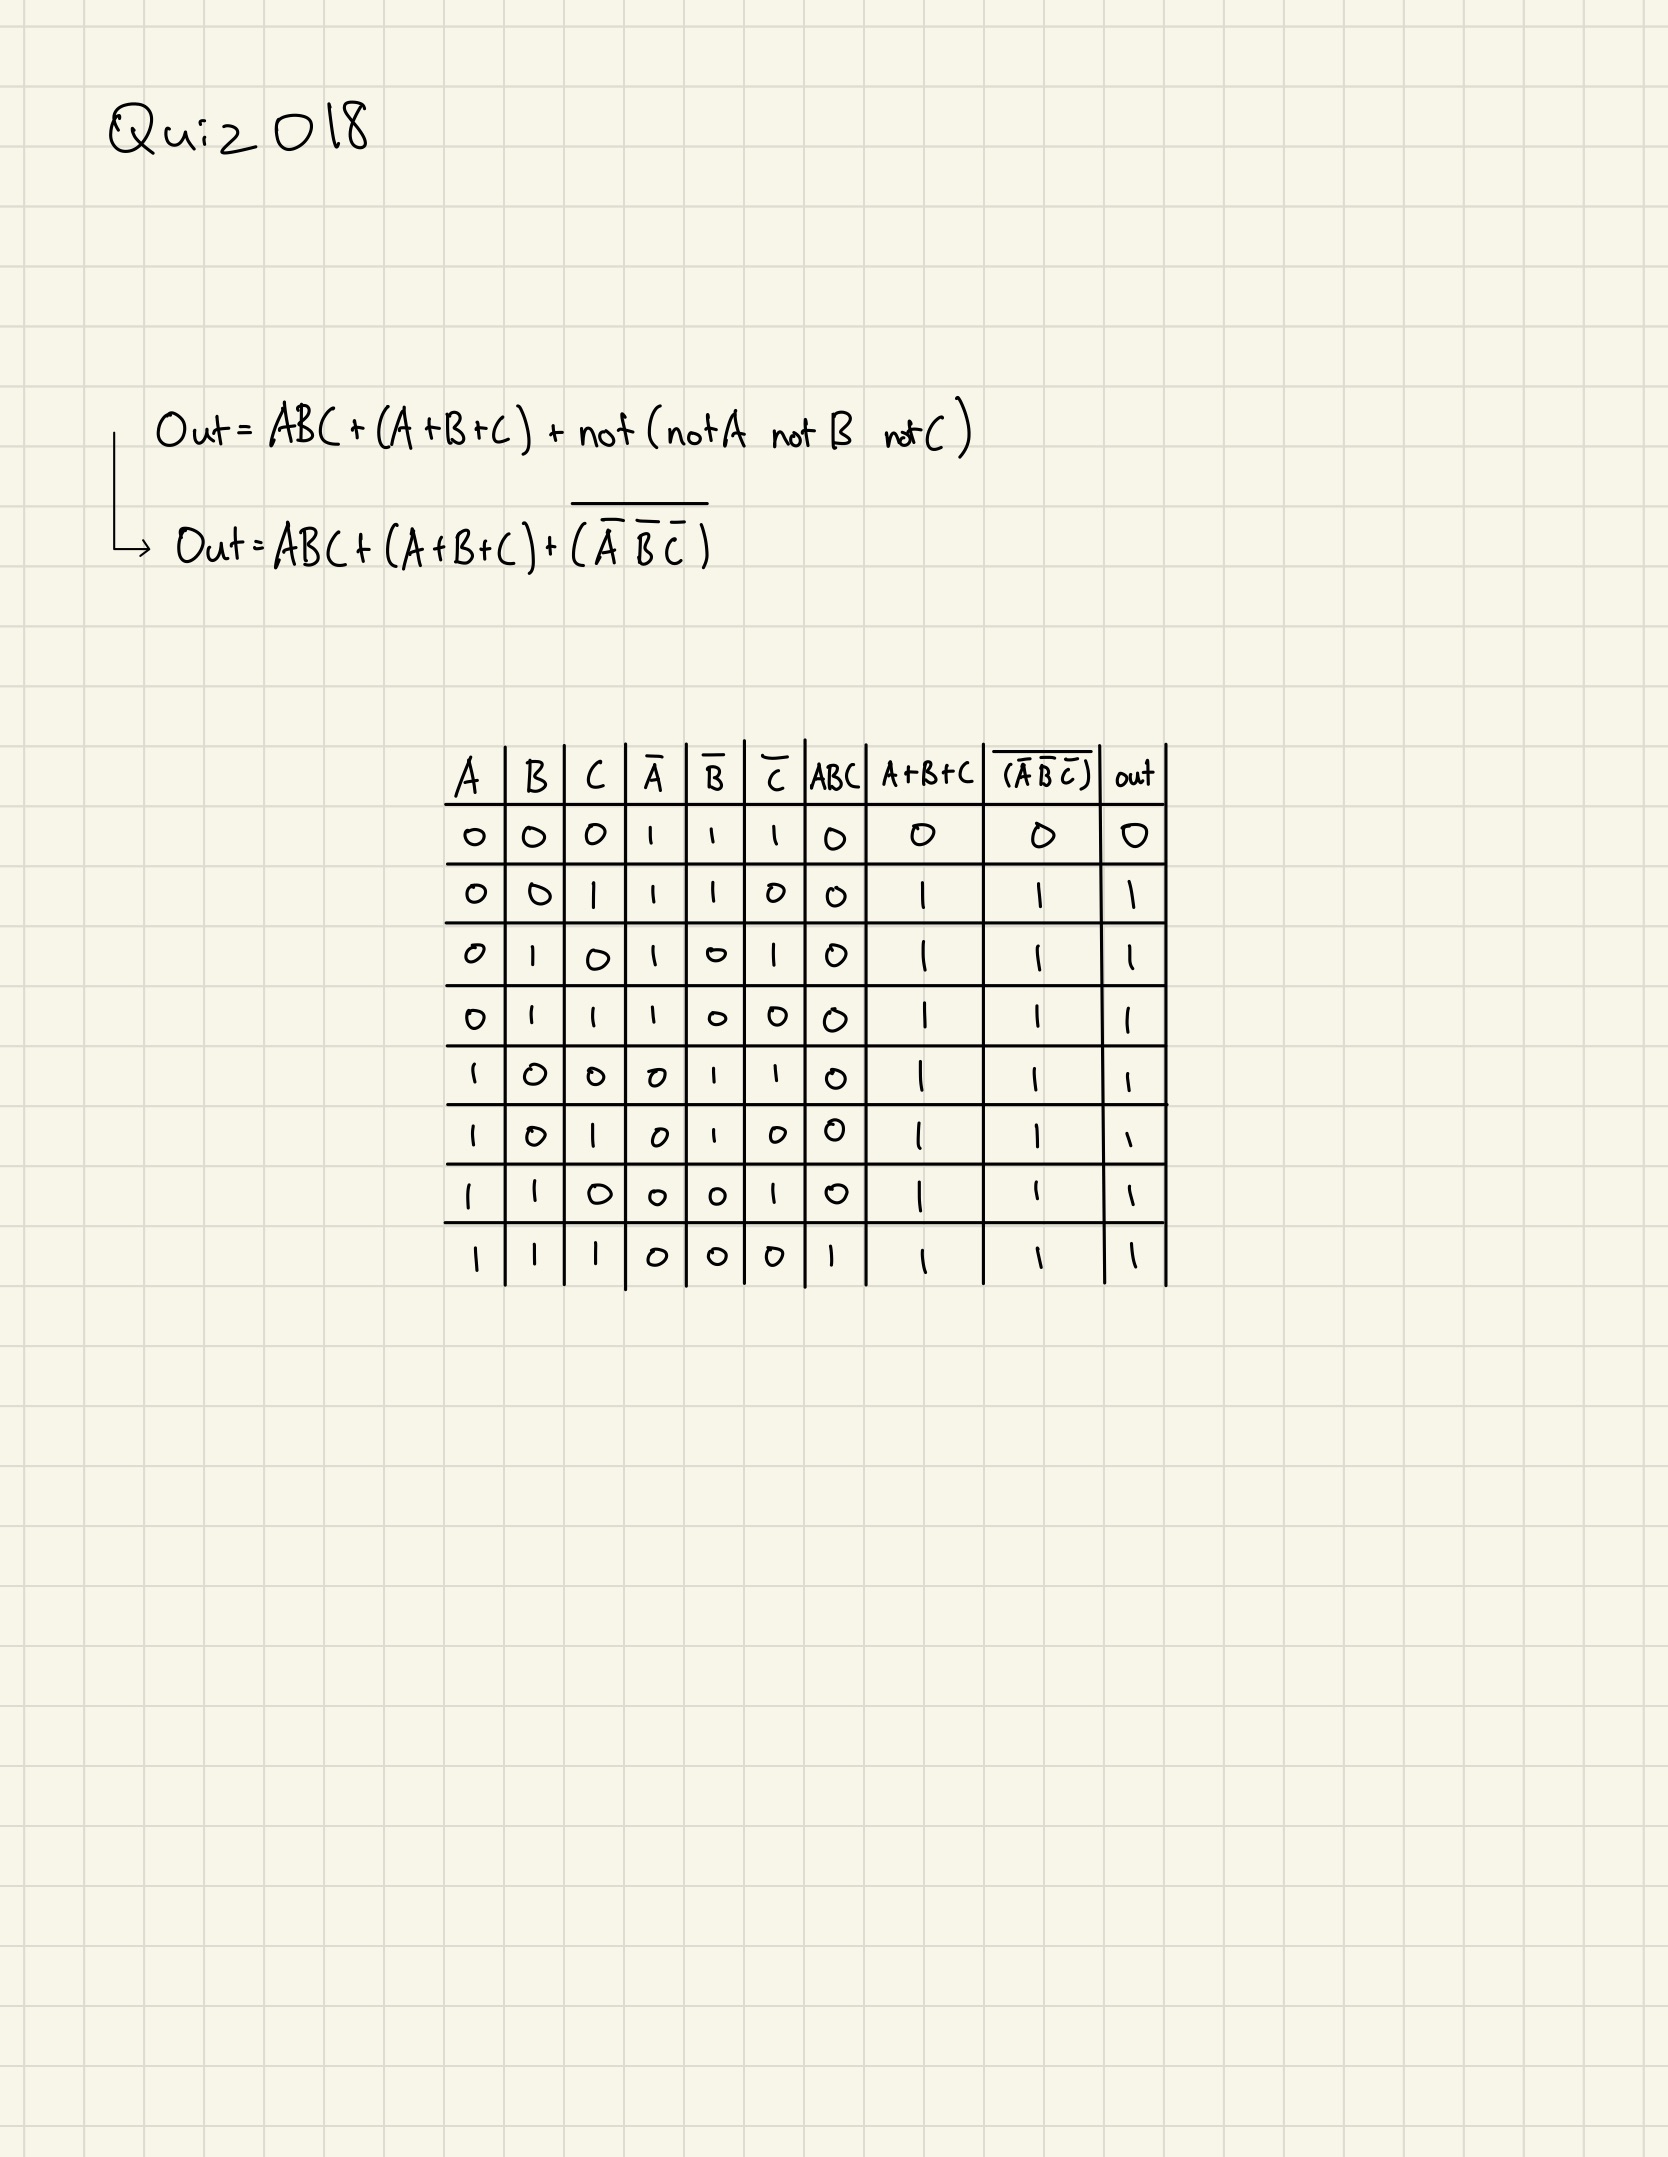 Quiz 018
Out = ABC + (A + B + C) + not (not A not B not C)
Out = ABC + (A + B + C) + \overline{(\overline{A} \overline{B} \overline{C})}
A B C \overline{A} \overline{B} \overline{C} ABC A+B+C \overline{(\overline{A} \overline{B} \overline{C})} out
0 0 0 1 1 1 0 0 0 0
0 0 1 1 1 0 0 1 1 1
0 1 0 1 0 1 0 1 1 1
0 1 1 1 0 0 0 1 1 1
1 0 0 0 1 1 0 1 1 1
1 0 1 0 1 0 0 1 1 1
1 1 0 0 0 1 0 1 1 1
1 1 1 0 0 0 1 1 1 1